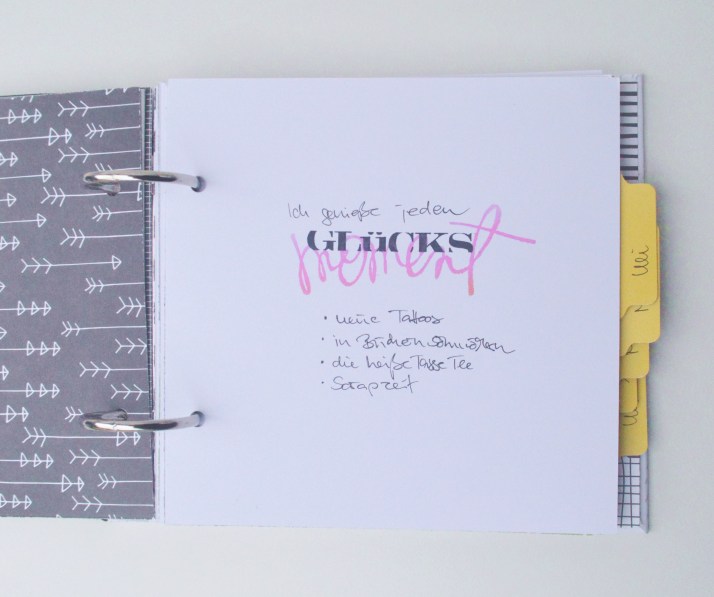 Ich genieße jeden
GLÜCKS
moment
• neue Tattoos
• in Büchern schmökern
• die heiße Tasse Tee
• Scrapzeit